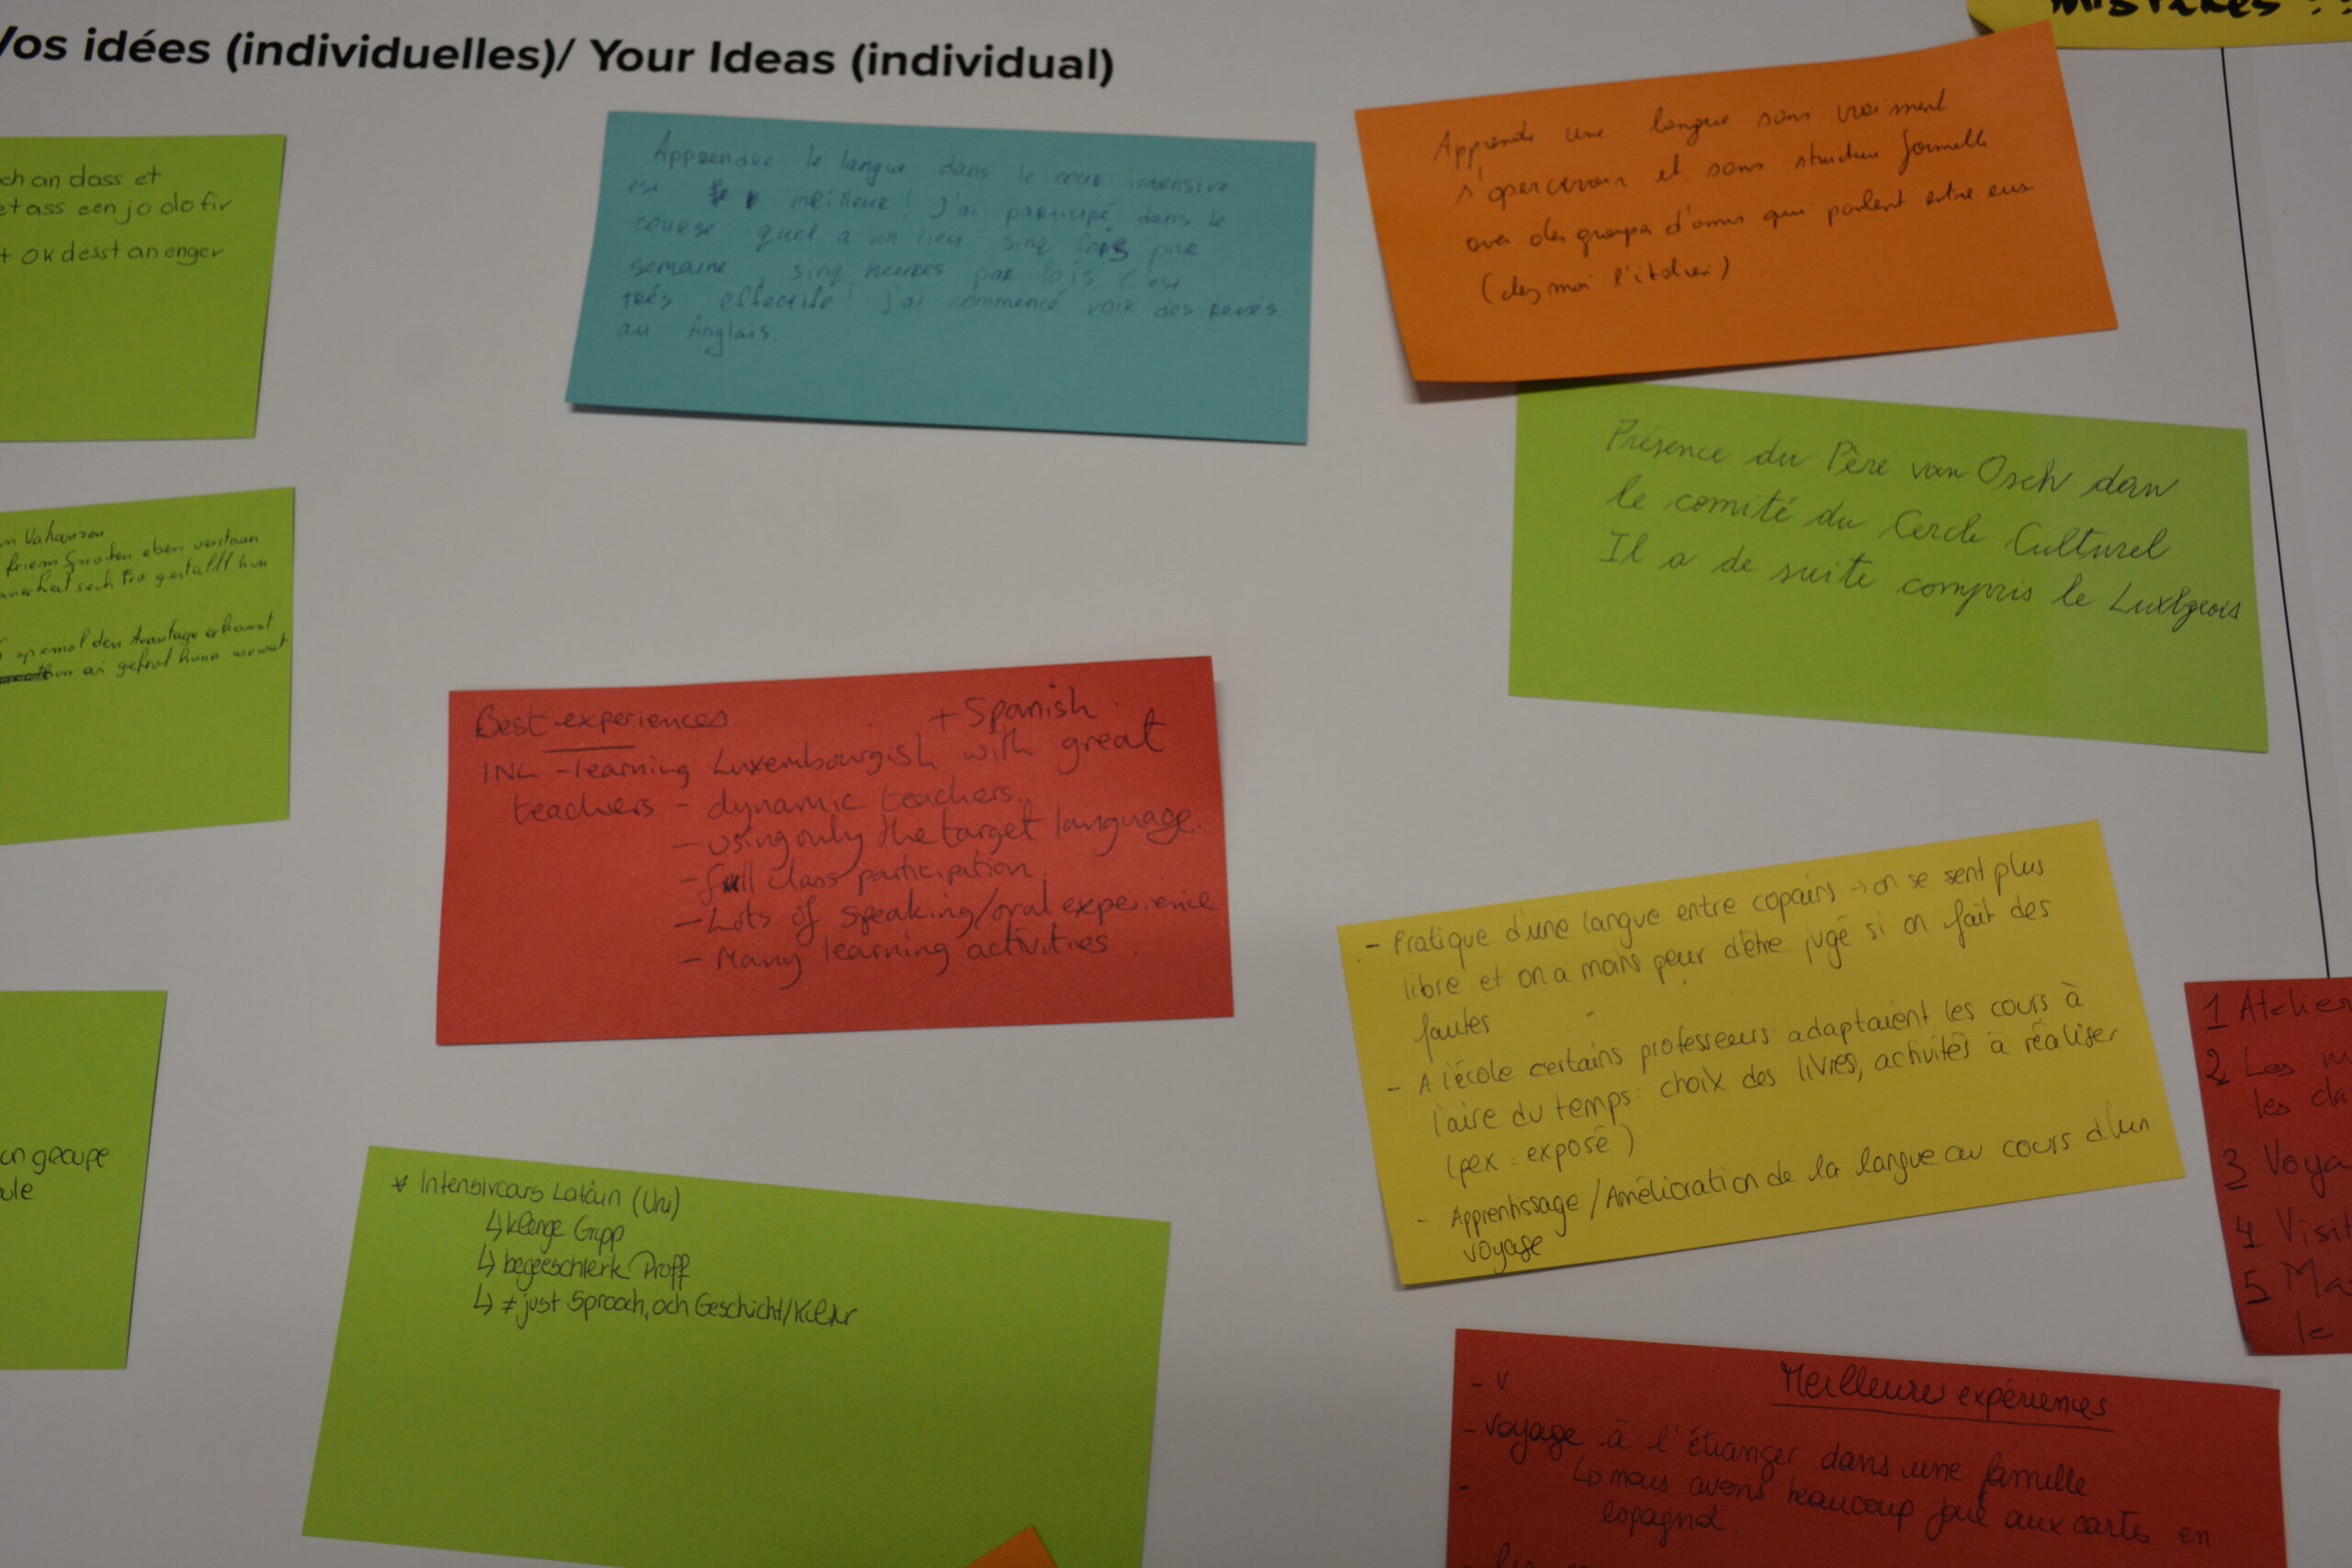 Vos idées (individuelles)/ Your Ideas (individual)
mistakes !!
ch an dass et
et ass een jo do fir
+ OK desst an enger
Apprendre le langue dans le cour intensive
est meilleur! J'ai participé dans le
course quel a un lieu sinq fois par
semaine, sinq heures par fois. C'est
trés effective! j'ai commencé voir des revés
au Anglais.
Apprendre une langue sans vraiment
s'apercevoir et sans structure formelle
avec des groupes d'amis qui parlent entre eux
(chez moi l'italien)
Présence du Père van Osch dans
le comité du Cercle Culturel
Il a de suite compris le Luxbgeois
friem Sproochen eben verstaan
op emol den Avantage erkannt
Best experiences + Spanish
INL - learning Luxembourgish with great
teachers - dynamic teachers.
- using only the target language.
- full class participation.
- Lots of speaking/oral experience
- Many learning activities
- Pratique d'une langue entre copains → on se sent plus
libre et on a moins peur d'être jugé si on fait des
fautes
- A l'école certains professeurs adaptaient les cours à
l'aire du temps: choix des livres, activités à réaliser
(pex: exposé)
- Apprentissage / Amélioration de la langue au cours d'un
voyage
un groupe
ule
* Intensivcours Latäin (Uni)
↳ klenge Grupp
↳ begeeschterk Proff
↳ ≠ just Sprooch, och Geschicht/Kultur
1 Atelier
2 Les
les cla
3 Voya
4 Visit
5 Ma
le
Meilleures expériences
- V
- voyage à l'étranger dans une famille
↳ nous avons beaucoup joué aux cartes en
espagnol.